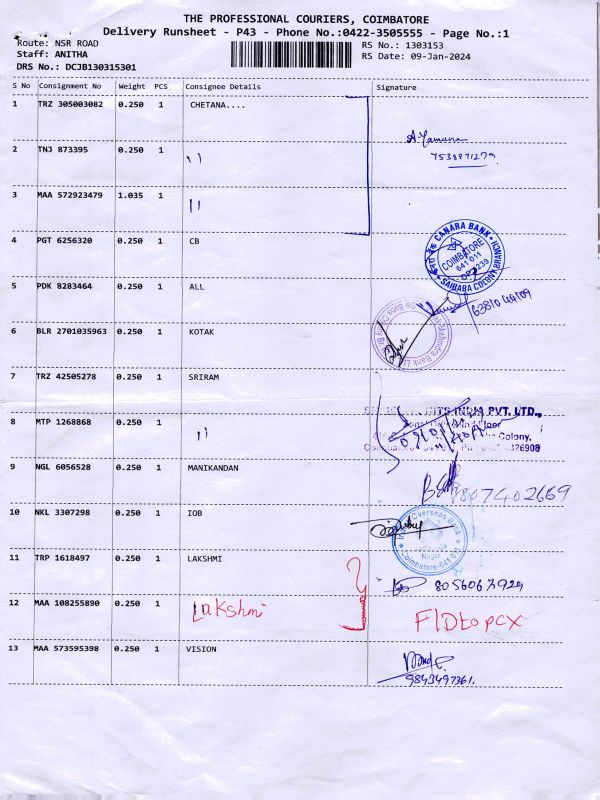 THE PROFESSIONAL COURIERS, COIMBATORE
Delivery Runsheet - P43 - Phone No.:0422-3505555 - Page No.:1
Route: NSR ROAD
RS No.: 1303153
Staff: ANITHA
RS Date: 09-Jan-2024
DRS No.: DCJB130315301
S No Consignment No Weight PCS Consignee Details Signature
1 TRZ 305003082 0.250 1 CHETANA....
A. Yamuna
7538871279
2 TNJ 873395 0.250 1 "
3 MAA 572923479 1.035 1 "
CANARA BANK
COIMBATORE
641 011
SAIBABA COLONY BRANCH
4 PGT 6256320 0.250 1 CB
5 PDK 8283464 0.250 1 ALL
6381044109
6 BLR 2701035963 0.250 1 KOTAK
7 TRZ 42505278 0.250 1 SRIRAM
INDIA PVT. LTD.,
8 MTP 1268868 0.250 1 "
Colony,
9 NGL 6056528 0.250 1 MANIKANDAN
9807402669
10 NKL 3307298 0.250 1 IOB
Overseas Bank
Nagar
Coimbatore-641 011
11 TRP 1618497 0.250 1 LAKSHMI
8056063929
12 MAA 108255890 0.250 1 Lakshmi
FIDtopcx
13 MAA 573595398 0.250 1 VISION
9843497361.